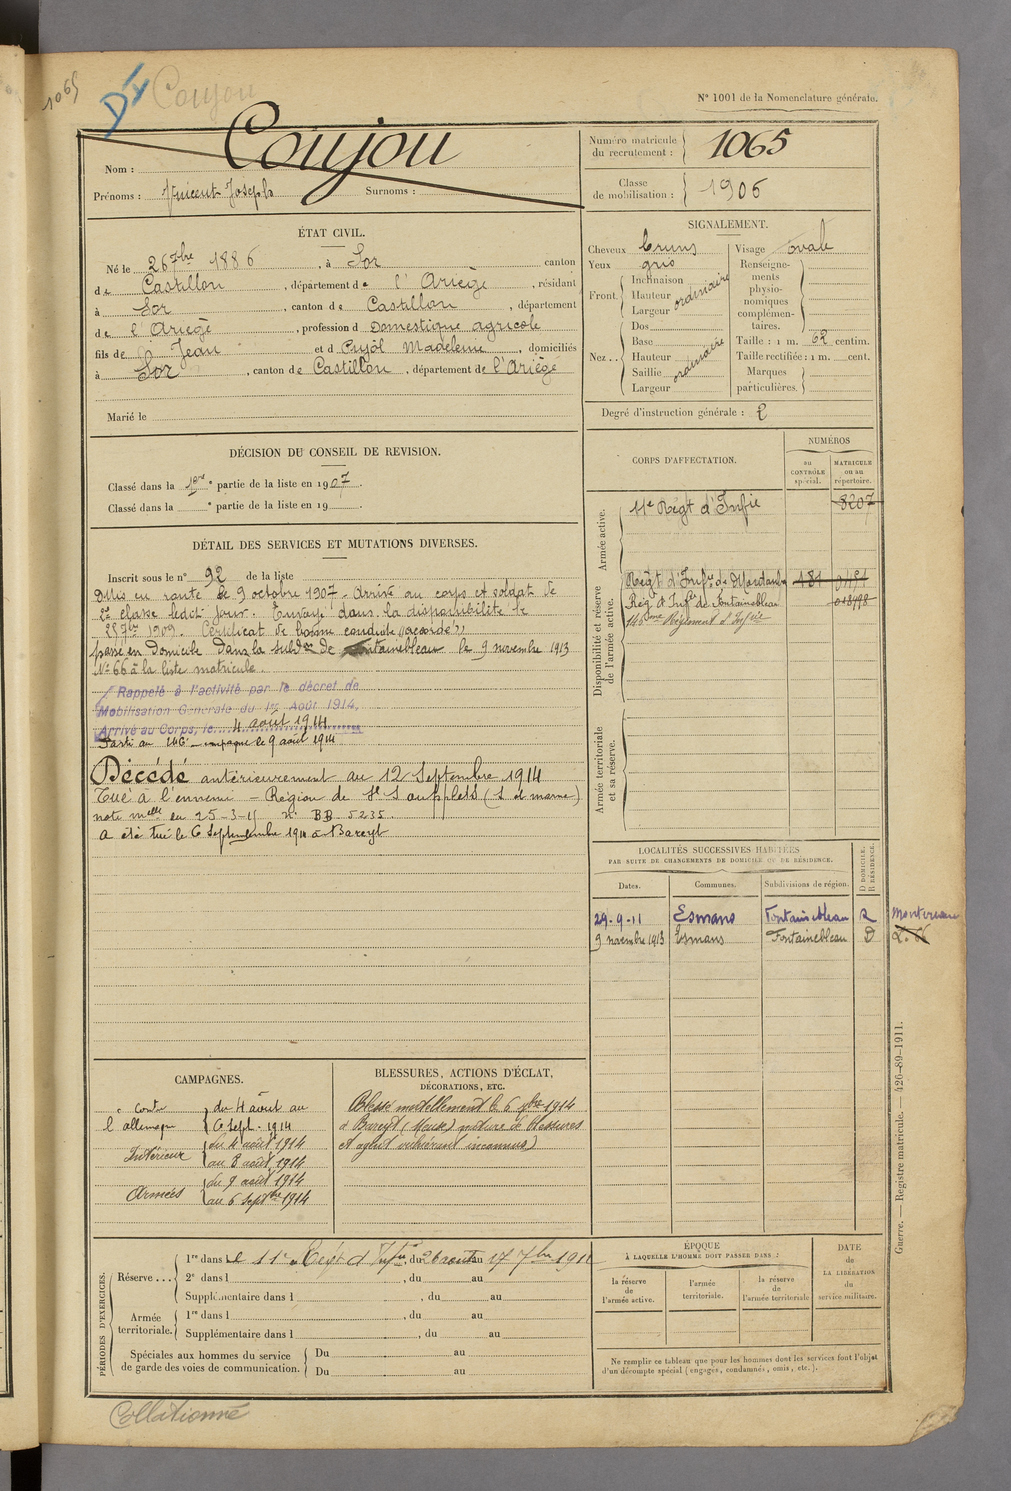 1065
Dy Coujou
N° 1001 de la Nomenclature générale.
Nom : Coujou
Prénoms : Vincent Joseph Surnoms :
Numéro matricule du recrutement : 1065
Classe de mobilisation : 1906
ÉTAT CIVIL.
Né le 26 7bre 1886, à Sor canton
de Castillon, département de l'Ariège, résidant
à Sor, canton de Castillon, département
de l'Ariège, profession d Domestique agricole
fils de Jean et d Cujol Madeleine, domiciliés
à Sor, canton de Castillon, département de l'Ariège
Marié le
SIGNALEMENT.
Cheveux bruns
Yeux gris
Front. Inclinaison
Hauteur ordinaire
Largeur
Nez.. Dos
Base
Hauteur ordinaire
Saillie
Largeur
Visage ovale
Renseignements physionomiques complémentaires.
Taille : 1 m. 62 centim.
Taille rectifiée : 1 m. cent.
Marques particulières.
Degré d'instruction générale : 2
DÉCISION DU CONSEIL DE REVISION.
Classé dans la 1ère partie de la liste en 1907.
Classé dans la ° partie de la liste en 19 .
DÉTAIL DES SERVICES ET MUTATIONS DIVERSES.
Inscrit sous le n° 92 de la liste
Mis en route le 9 octobre 1907. Arrivé au corps et soldat de
2e classe ledit jour. Envoyé dans la disponibilité le
25 7bre 1909. Certificat de bonne conduite "accordé"
passé en Domicile dans la subdon de Fontainebleau le 9 novembre 1913
N° 66 à la liste matricule.
Rappelé à l'activité par le décret de
Mobilisation Générale du 1er Août 1914.
Arrivé au Corps, le 4 août 1914
Parti en campagne le 9 août 1914
Décédé antérieurement au 12 Septembre 1914
Tué à l'ennemi - Région de St Soupplets (S et marne)
note melle en 25-3-15 n° BB. 5235.
a été tué le 6 Septembre 1914 à Bareyt
CORPS D'AFFECTATION.
NUMÉROS
au CONTRÔLE spécial.
MATRICULE ou au répertoire.
Armée active.
11e Régt d'Infie 8207
Disponibilité et réserve de l'armée active.
Régt d'Infie de Montauban 181
Rég. d'Infie de Fontainebleau 018498
146ème Régiment d'Infie
Armée territoriale et sa réserve.
LOCALITÉS SUCCESSIVES HABITÉES
PAR SUITE DE CHANGEMENTS DE DOMICILE OU DE RÉSIDENCE.
Dates. Communes. Subdivisions de région. D DOMICILE. R RÉSIDENCE.
29-9-11 Esmans Fontainebleau R Montereau
9 novembre 1913 Esmans Fontainebleau D L. 66
CAMPAGNES.
contre l'allemagne du 4 août au 6 Sept. 1914
Intérieur du 4 août 1914
au 8 août 1914
Armées du 9 août 1914
au 6 Septbre 1914
BLESSURES, ACTIONS D'ÉCLAT,
DÉCORATIONS, ETC.
Blessé mortellement le 6 7bre 1914
à Bareyt (Meuse) nature de blessures
et agent vulnérant inconnus)
PÉRIODES D'EXERCICES.
Réserve... 1re dans le 11e Régt d'Infie, du 26 août au 17 7bre 1911
2e dans l , du au
Supplémentaire dans l , du au
Armée territoriale. 1re dans l , du au
Supplémentaire dans l , du au
Spéciales aux hommes du service de garde des voies de communication. Du au
Du au
ÉPOQUE
À LAQUELLE L'HOMME DOIT PASSER DANS :
la réserve de l'armée active.
l'armée territoriale.
la réserve de l'armée territoriale
DATE DE LA LIBÉRATION du service militaire.
Ne remplir ce tableau que pour les hommes dont les services font l'objet
d'un décompte spécial (engagés, condamnés, omis, etc.).
Guerre. — Registre matricule. — 426-89-1911.
Collationné